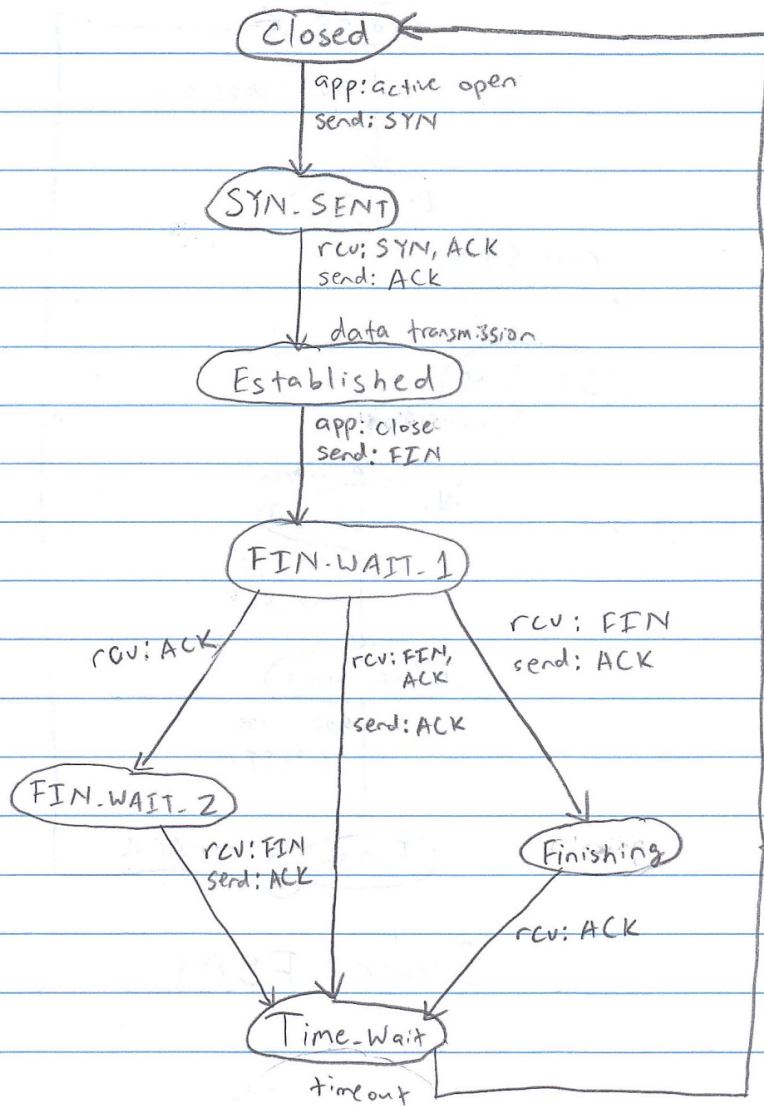 Closed
app: active open
send: SYN
SYN_SENT
rcv: SYN, ACK
send: ACK
data transmission
Established
app: close
send: FIN
FIN_WAIT_1
rcv: ACK
rcv: FIN,
ACK
send: ACK
rcv: FIN
send: ACK
FIN_WAIT_2
Finishing
rcv: FIN
send: ACK
rcv: ACK
Time_Wait
timeout